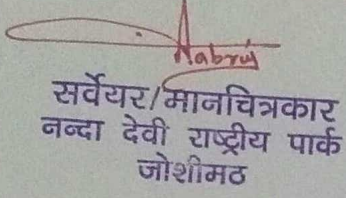 सर्वेयर/मानचित्रकार
नन्दा देवी राष्ट्रीय पार्क
जोशीमठ